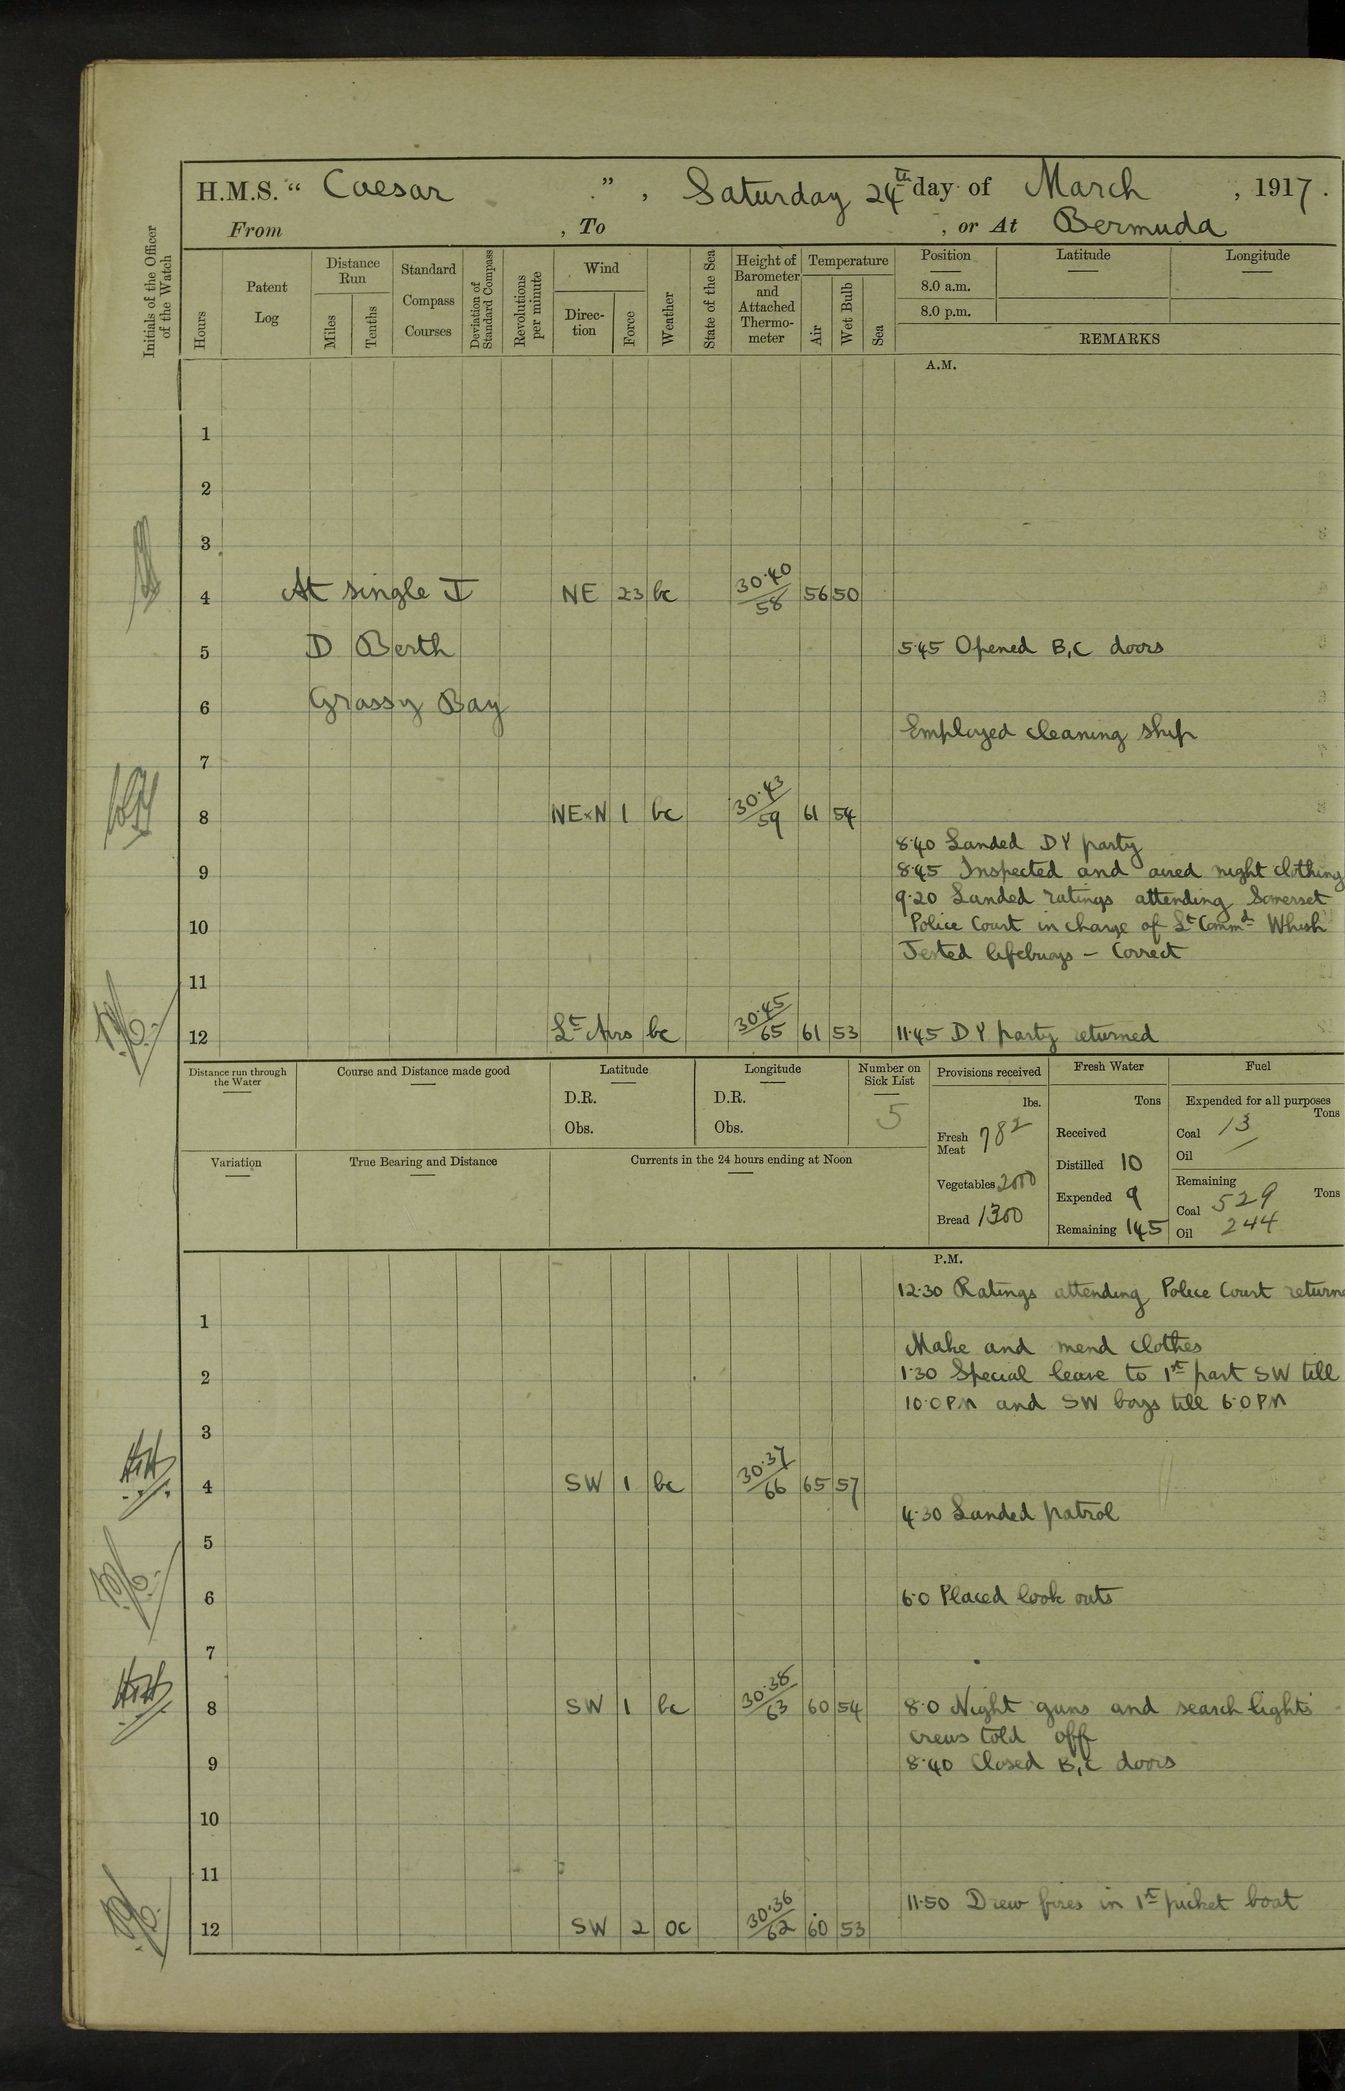 H.M.S. “ Caesar ” , Saturday 24th day of March , 1917 .
From , To , or At Bermuda
Initials of the Officer of the Watch
Hours
Patent Log
Distance Run
Miles
Tenths
Standard Compass Courses
Deviation of Standard Compass
Revolutions per minute
Wind
Direc- tion
Force
Weather
State of the Sea
Height of Barometer and Attached Thermo- meter
Temperature
Air
Wet Bulb
Sea
Position
8.0 a.m.
8.0 p.m.
Latitude
Longitude
REMARKS
A.M.
1
2
3
4 At single NE 23 bc 30.40/58 56 50
5 D Berth 5.45 Opened B,C doors
6 Grassy Bay
Employed cleaning ship
7
8 NE×N 1 bc 30.43/59 61 54
8.40 Landed DY party
9 8.45 Inspected and aired night clothing
9.20 Landed ratings attending Somerset
10 Police Court in charge of Lt Commd Whish
Tested lifebuoys – Correct
11
12 Lt Airs bc 30.45/65 61 53 11.45 DY party returned
Distance run through the Water
Course and Distance made good
Latitude
D.R.
Obs.
Longitude
D.R.
Obs.
Number on Sick List
5
Provisions received
lbs.
Fresh Meat 782
Vegetables 2000
Bread 1300
Fresh Water
Tons
Received
Distilled 10
Expended 9
Remaining 145
Fuel
Expended for all purposes
Tons
Coal 13
Oil
Remaining
Tons
Coal 529
Oil 244
Variation
True Bearing and Distance
Currents in the 24 hours ending at Noon
P.M.
12.30 Ratings attending Police Court return
1
Make and mend clothes
2 1.30 Special leave to 1st part SW till
10.0 PM and SW boys till 6.0 PM
3
4 SW 1 bc 30.37/66 65 57
4.30 Landed patrol
5
6 6.0 Placed look outs
7
8 SW 1 bc 30.38/63 60 54 8.0 Night guns and search lights
crews told off
9 8.40 Closed B,C doors
10
11
11.50 Drew fires in 1st picket boat
12 SW 2 oc 30.36/62 60 53